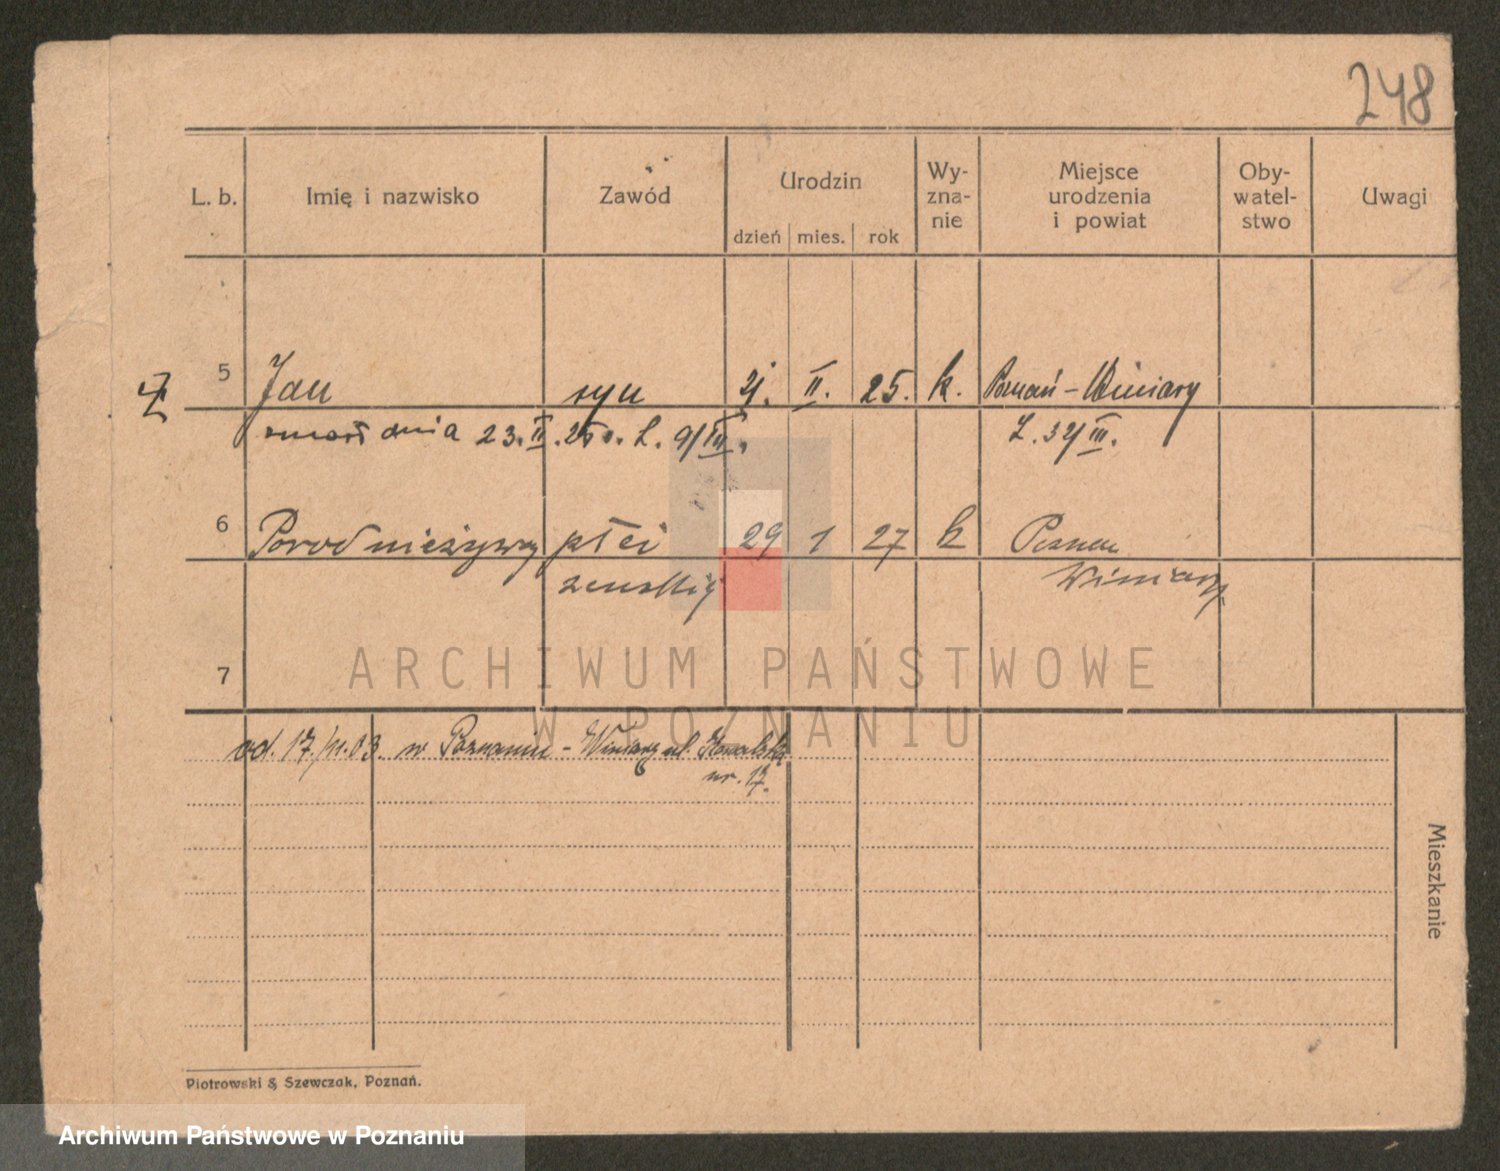 248
L. b. Imię i nazwisko Zawód Urodzin dzień mies. rok Wy-zna-nie Miejsce urodzenia i powiat Oby-watel-stwo Uwagi
5 Jan syn II. 25. k. Poznań - Winiary
zmarł dnia 23. II. L. 9/III. L. 32/III.
6 Poród nieżywy płci 29 1 27 k Poznań
żeńskiej Winiary
7
ARCHIWUM PAŃSTWOWE
W POZNANIU
od. 17. 03. w Poznaniu - Winiary ul.
nr. 17.
Mieszkanie
Piotrowski & Szewczak, Poznań.
Archiwum Państwowe w Poznaniu